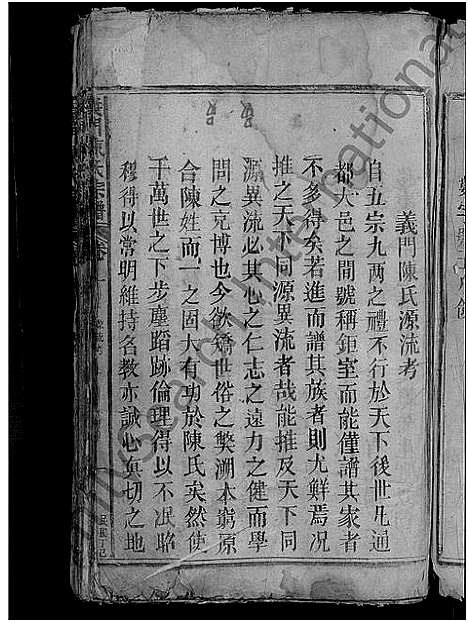 義門陳氏源流考
自五宗九兩之禮不行於天下後世凡通
都大邑之間號稱鉅室而能僅譜其家者
不多得矣若進而譜其族者則尤鮮焉况
推之天下同源異流者哉能推及天下同
源異流必其心之仁志之遠力之健而學
問之克博也今欲矯世俗之獘溯本窮原
合陳姓而一之固大有功於陳氏矣然使
千萬世之下步塵蹈跡倫理得以不泯昭
穆得以常明維持名教亦誠心真切之地
義門陳氏宗譜 卷一
My Search International